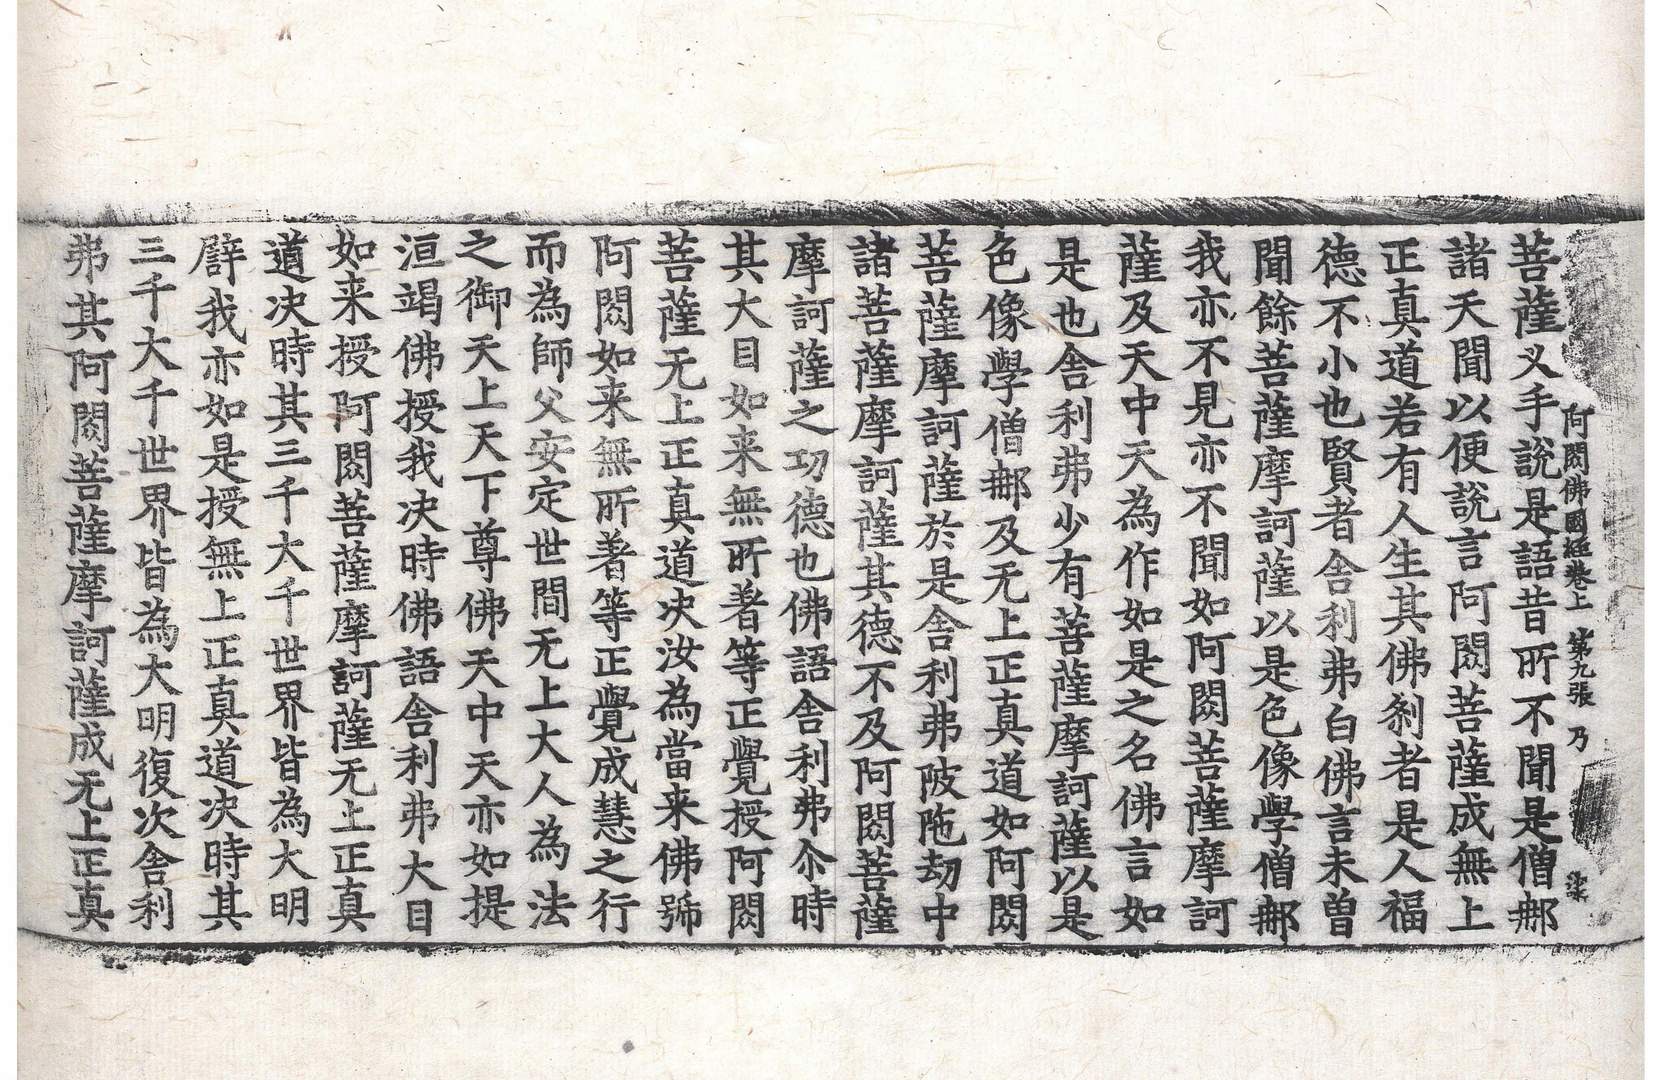 阿閦佛國經卷上 第九張 乃 梁
菩薩义手說是語昔所不聞是僧那
諸天聞以便說言阿閦菩薩成無上
正真道若有人生其佛刹者是人福
德不小也賢者舍利弗白佛言未曾
聞餘菩薩摩訶薩以是色像學僧那
我亦不見亦不聞如阿閦菩薩摩訶
薩及天中天為作如是之名佛言如
是也舍利弗少有菩薩摩訶薩以是
色像學僧那及无上正真道如阿閦
菩薩摩訶薩於是舍利弗陂陁劫中
諸菩薩摩訶薩其德不及阿閦菩薩
摩訶薩之功德也佛語舍利弗尒時
其大目如来無所著等正覺授阿閦
菩薩无上正真道决汝為當来佛號
阿閦如来無所著等正覺成慧之行
而為師父安定世間无上大人為法
之御天上天下尊佛天中天亦如提
洹竭佛授我决時佛語舍利弗大目
如来授阿閦菩薩摩訶薩无上正真
道决時其三千大千世界皆為大明
譬我亦如是授無上正真道决時其
三千大千世界皆為大明復次舍利
弗其阿閦菩薩摩訶薩成无上正真